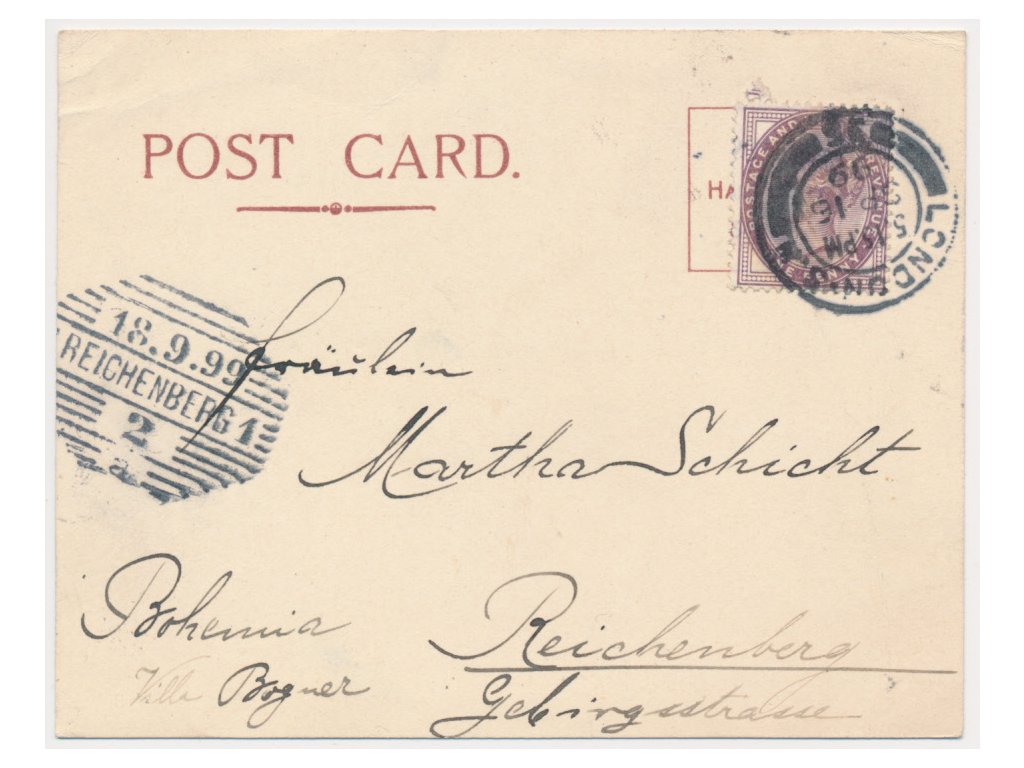 POST CARD.
HA
POSTAGE AND REVENUE
ONE PENNY
LONDON
5.15 PM
SP 16
99
18.9.99
REICHENBERG 1
2
a
Fräulein
Martha Schicht
Bohemia Reichenberg
Villa Bogner Gebirgsstrasse